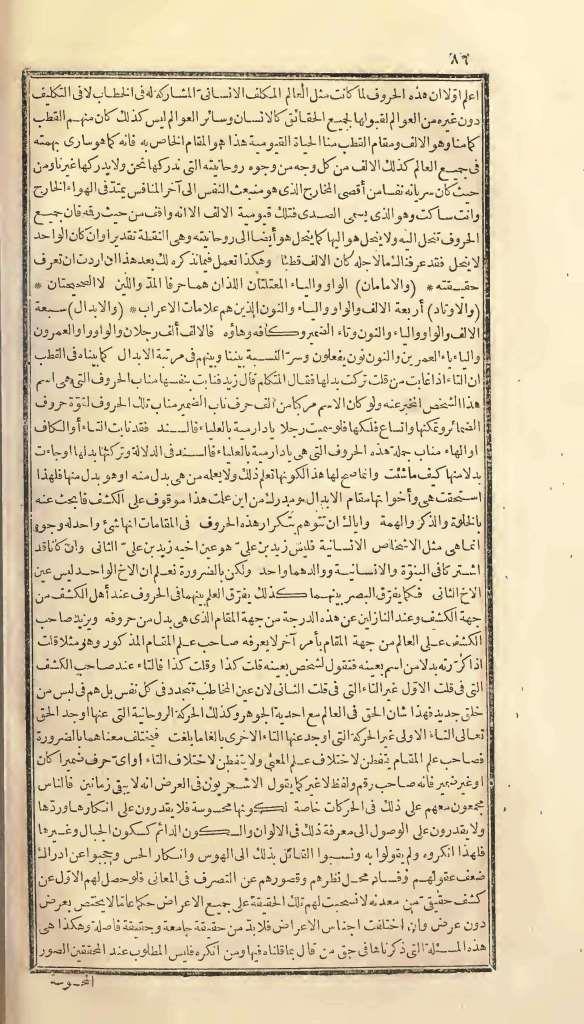 ٨٦
اعلم أولا ان هذه الحروف لما كانت مثل العالم المكلف الانسانى المشاركة له فى الخطاب لا فى التكليف
دون غيره من العوالم لقبولها لجميع الحقائق كالانسان وسائر العوالم ليس كذلك كان منهم القطب
كما منا وهو الالف ومقام القطب منا الحياة القيومية هذا هو المقام الخاص به فانه كما هو سارى بهمته
فى جميع العالم كذلك الالف من كل وجه من وجوه روحانيته التى ندركها نحن ولا يدركها غيرنا ومن
حيث كان سريانه نفسا من أقصى المخارج الذى هو منبعث النفس الى آخر المنافس يمتد فى الهواء الخارج
وانت ساكت وهو الذى يسمى الصدى فتلك قيومية الالف الا انه واقف من حيث رقه فان جميع
الحروف تنحل اليه ولا ينحل هو اليها كما ينحل هو أيضا الى روحانيته وهى النقطة تقديرا وان كان الواحد
لا ينحل فقد عرفناك ما لاجله كان الالف قطبا وهكذا تعمل فيما نذكره لك بعد هذا ان اردت ان تعرف
حقيقته * (والامامان) الواو والياء المعتلتان اللذان هما حرفا المد واللين لا الصحيحتان *
(والاوتاد) أربعة الالف والواو والياء والنون الذين هم علامات الاعراب * (والابدال) سبعة
الالف والواو والياء والنون وتاء الضمير وكافه وهاؤه فالالف ألف رجلان والواو واو العمرون
والياء ياء العمرين والنون نون يفعلون وسر النسبة بيننا وبينهم فى مرتبة الابدال كما بيناه فى القطب
ان التاء اذا غابت من قلت تركت بدلها فقال المتكلم قال زيد فنابت بنفسها مناب الحروف التى هى اسم
هذا الشخص المخبر عنه ولو كان الاسم مركبا من ألف حرف ناب الضمير مناب تلك الحروف لقوة حروف
الضمائر وتمكنها واتساع فلكها فلو سميت رجلا يا دارمية بالعلياء فالسند فقد نابت التاء أو الكاف
او الهاء مناب جملة هذه الحروف التى هى يا دارمية بالعلياء فالسند فى الدلالة وتركتها بدلها او جاءت
بدلا منها كيف ما شئت وانما صح لها هذا لكونها تعلم ذلك ولا يعلمه من هى بدل منه او هو بدل منها فلهذا
استحقت هى وأخواتها مقام الابدال ومدرك من اين علمت هذا موقوف على الكشف فابحث عنه
بالخلوة والذكر والهمة واياك ان تتوهم بتكرار هذه الحروف فى المقامات انها شئ واحد له وجوه
انما هى مثل الاشخاص الانسانية فليس زيد بن على هو عين اخيه زيد بن على الثانى وان كانا قد
اشتركا فى البنوة والانسانية ووالدهما واحد ولكن بالضرورة نعلم ان الاخ الواحد ليس عين
الاخ الثانى فكما يفرق البصر بينهما كذلك يفرق العلم بينهما فى الحروف عند أهل الكشف من
جهة الكشف وعند النازلين عن هذه الدرجة من جهة المقام الذى هى بدل من حروفه ويزيد صاحب
الكشف على العالم من جهة المقام بأمر آخر لا يعرفه صاحب علم المقام المذكور وهو مثلا قلت
اذا كررته بدلا من اسم بعينه فتقول لشخص بعينه قلت كذا وقلت كذا فالتاء عند صاحب الكشف
التى فى قلت الاول غير التاء التى فى قلت الثانى لان عين المخاطب تتجدد فى كل نفس بل هم فى لبس من
خلق جديد فهذا شان الحق فى العالم مع احدية الجوهر وكذلك الحركة الروحانية التى عنها اوجد الحق
تعالى التاء الاولى غير الحركة التى اوجد عنها التاء الاخرى بالغا ما بلغت فيختلف معناهما بالضرورة
فصاحب علم المقام يتفطن لاختلاف علم المعنى ولا يتفطن لاختلاف التاء او اى حرف ضميرا كان
او غير ضمير فانه صاحب رقم ولفظ لا غير كما يقول الاشعريون فى العرض انه لا يبقى زمانين فالناس
مجمعون معهم على ذلك فى الحركات خاصة لكونها محسوسة فلا يقدرون على انكارها وردها
ولا يقدرون على الوصول الى معرفة ذلك فى الالوان والسكون الدائم كسكون الجبال وغيرها
فلهذا انكروه ولم يقولوا به ونسبوا القائل بذلك الى الهوس وانكار الحس وحجبوا عن ادراك
ضعف عقولهم وفساد محل نظرهم وقصورهم عن التصرف فى المعانى فلو حصل لهم الاول عن
كشف حقيقى من معدنه لانسحبت لهم تلك الحقيقة على جميع الاعراض حكما عاما لا يختص بعرض
دون عرض وان اختلفت اجناس الاعراض فلا بد من حقيقة جامعة وحقيقة فاصلة وهكذا هى
هذه المسئلة التى ذكرناها فى حق من قال بما قلناه فيها ومن انكره فليس المطلوب عند المحققين الصور
المحسوسة